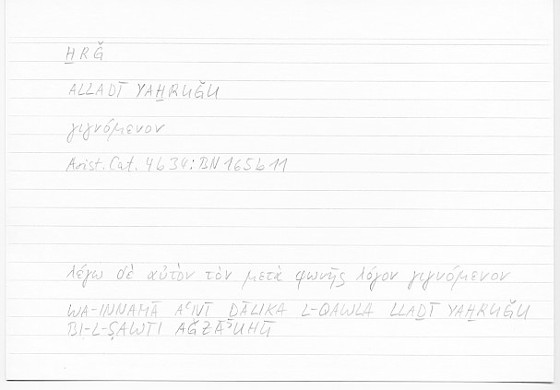 ḪRǦ
ALLAḎĪ YAḪRUǦU
γιγνόμενον
Arist. Cat. 4b34: BN 165b11
λέγω δὲ αὐτὸν τὸν μετὰ φωνῆς λόγον γιγνόμενον
WA-INNAMĀ AʿNĪ ḎĀLIKA L-QAWLA LLAḎĪ YAḪRUǦU
BI-L-ṢAWTI AǦZĀʾUHŪ